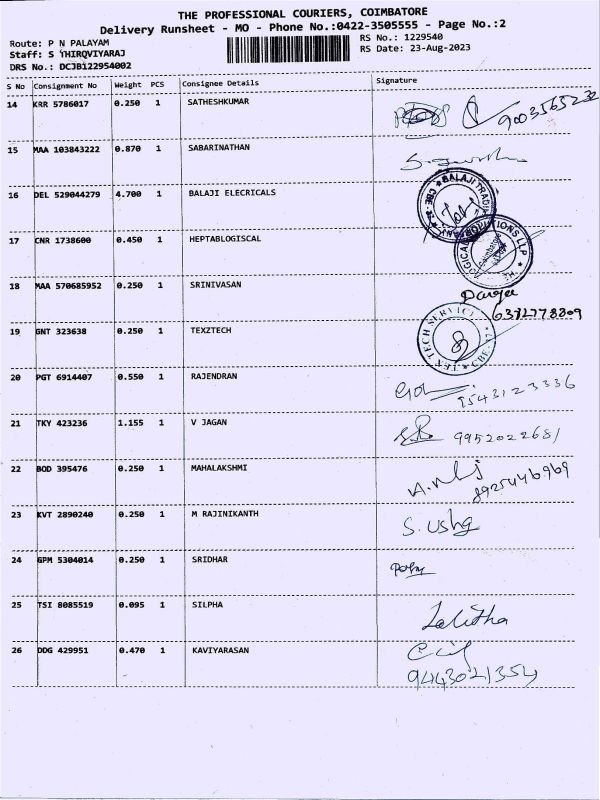 THE PROFESSIONAL COURIERS, COIMBATORE
Delivery Runsheet - MO - Phone No.:0422-3505555 - Page No.:2
Route: P N PALAYAM RS No.: 1229540
Staff: S THIRQVIYARAJ RS Date: 23-Aug-2023
DRS No.: DCJB122954002
S No Consignment No Weight PCS Consignee Details Signature
14 KRR 5786017 0.250 1 SATHESHKUMAR 9003565232
15 MAA 103843222 0.870 1 SABARINATHAN
16 DEL 529044279 4.700 1 BALAJI ELECRICALS
17 CNR 1738600 0.450 1 HEPTABLOGISCAL
18 MAA 570685952 0.250 1 SRINIVASAN
6372778809
19 GNT 323638 0.250 1 TEXZTECH
20 PGT 6914407 0.550 1 RAJENDRAN 9543123336
21 TKY 423236 1.155 1 V JAGAN 9952022681
22 BOD 395476 0.250 1 MAHALAKSHMI
8925446969
23 KVT 2890240 0.250 1 M RAJINIKANTH S. Usha
24 GPM 5304014 0.250 1 SRIDHAR
25 TSI 8085519 0.095 1 SILPHA Lalitha
26 DDG 429951 0.470 1 KAVIYARASAN
9443021354